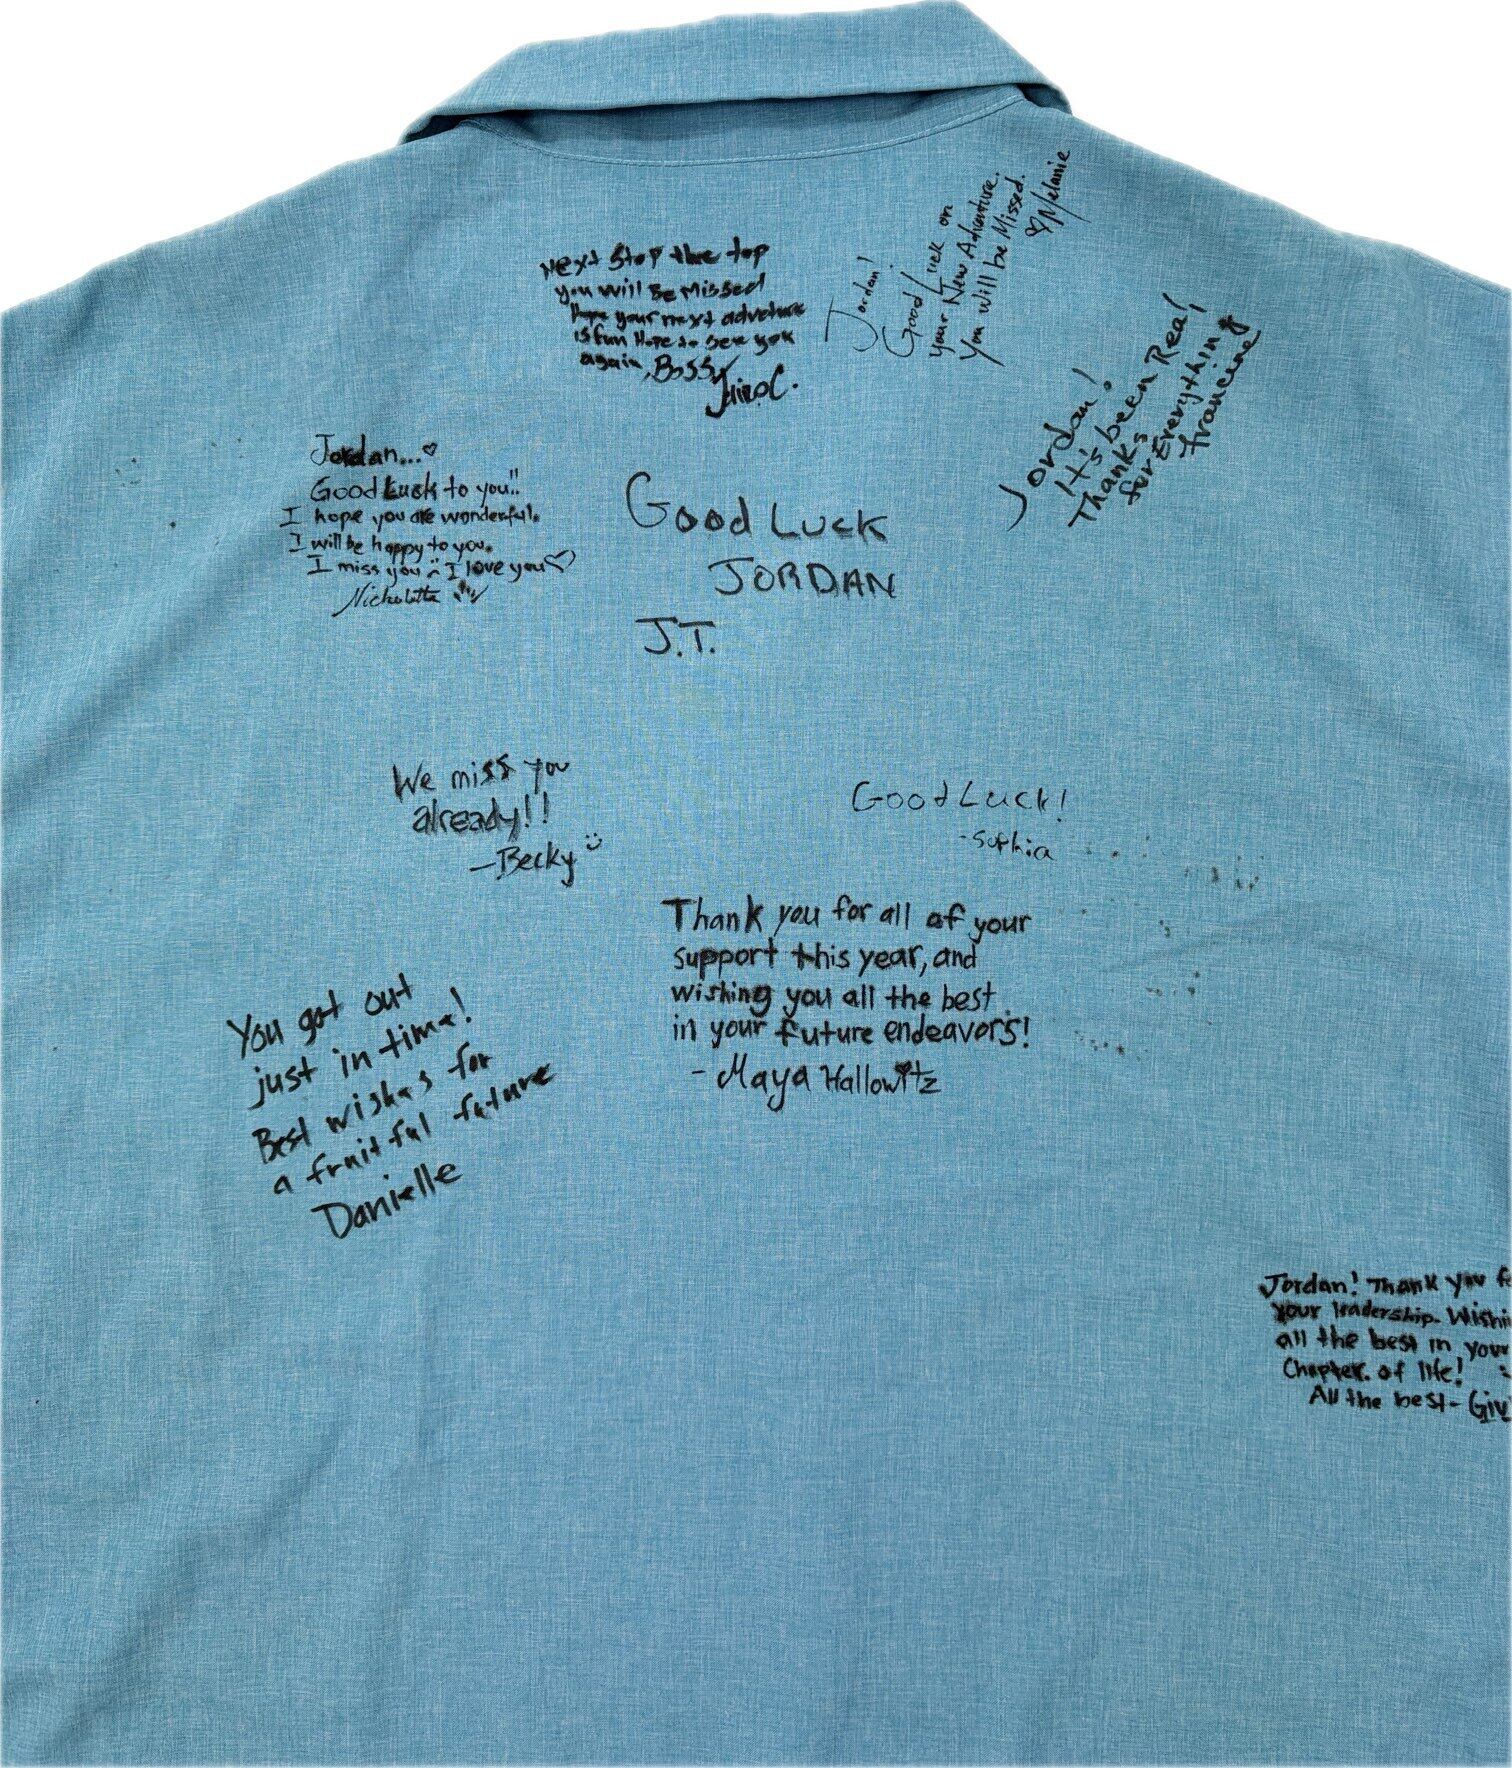 Next Stop the top
you will Be Missed
Hope your next adventure
is fun Hope to see you
again, Bossy
Jordan!
Good Luck on
your New Adventure.
You will be Missed.
♡Melanie
Jordan!
It's been Real!
Thanks
for Everything
francine
Jordan...♡
Good Luck to you!!
I hope you are wonderful.
I will be happy to you.
I miss you :( I love you♡
Nickolette
Good Luck
JORDAN
J.T.
We miss you
already!!
-Becky :)
Good Luck!
-Sophia
Thank you for all of your
support this year, and
wishing you all the best
in your future endeavors!
- Maya Hallowitz
You got out
just in time!
Best wishes for
a fruitful future
Danielle
Jordan! Thank you f
your leadership. Wishi
all the best in your
Chapter of life! :
All the best - Giv